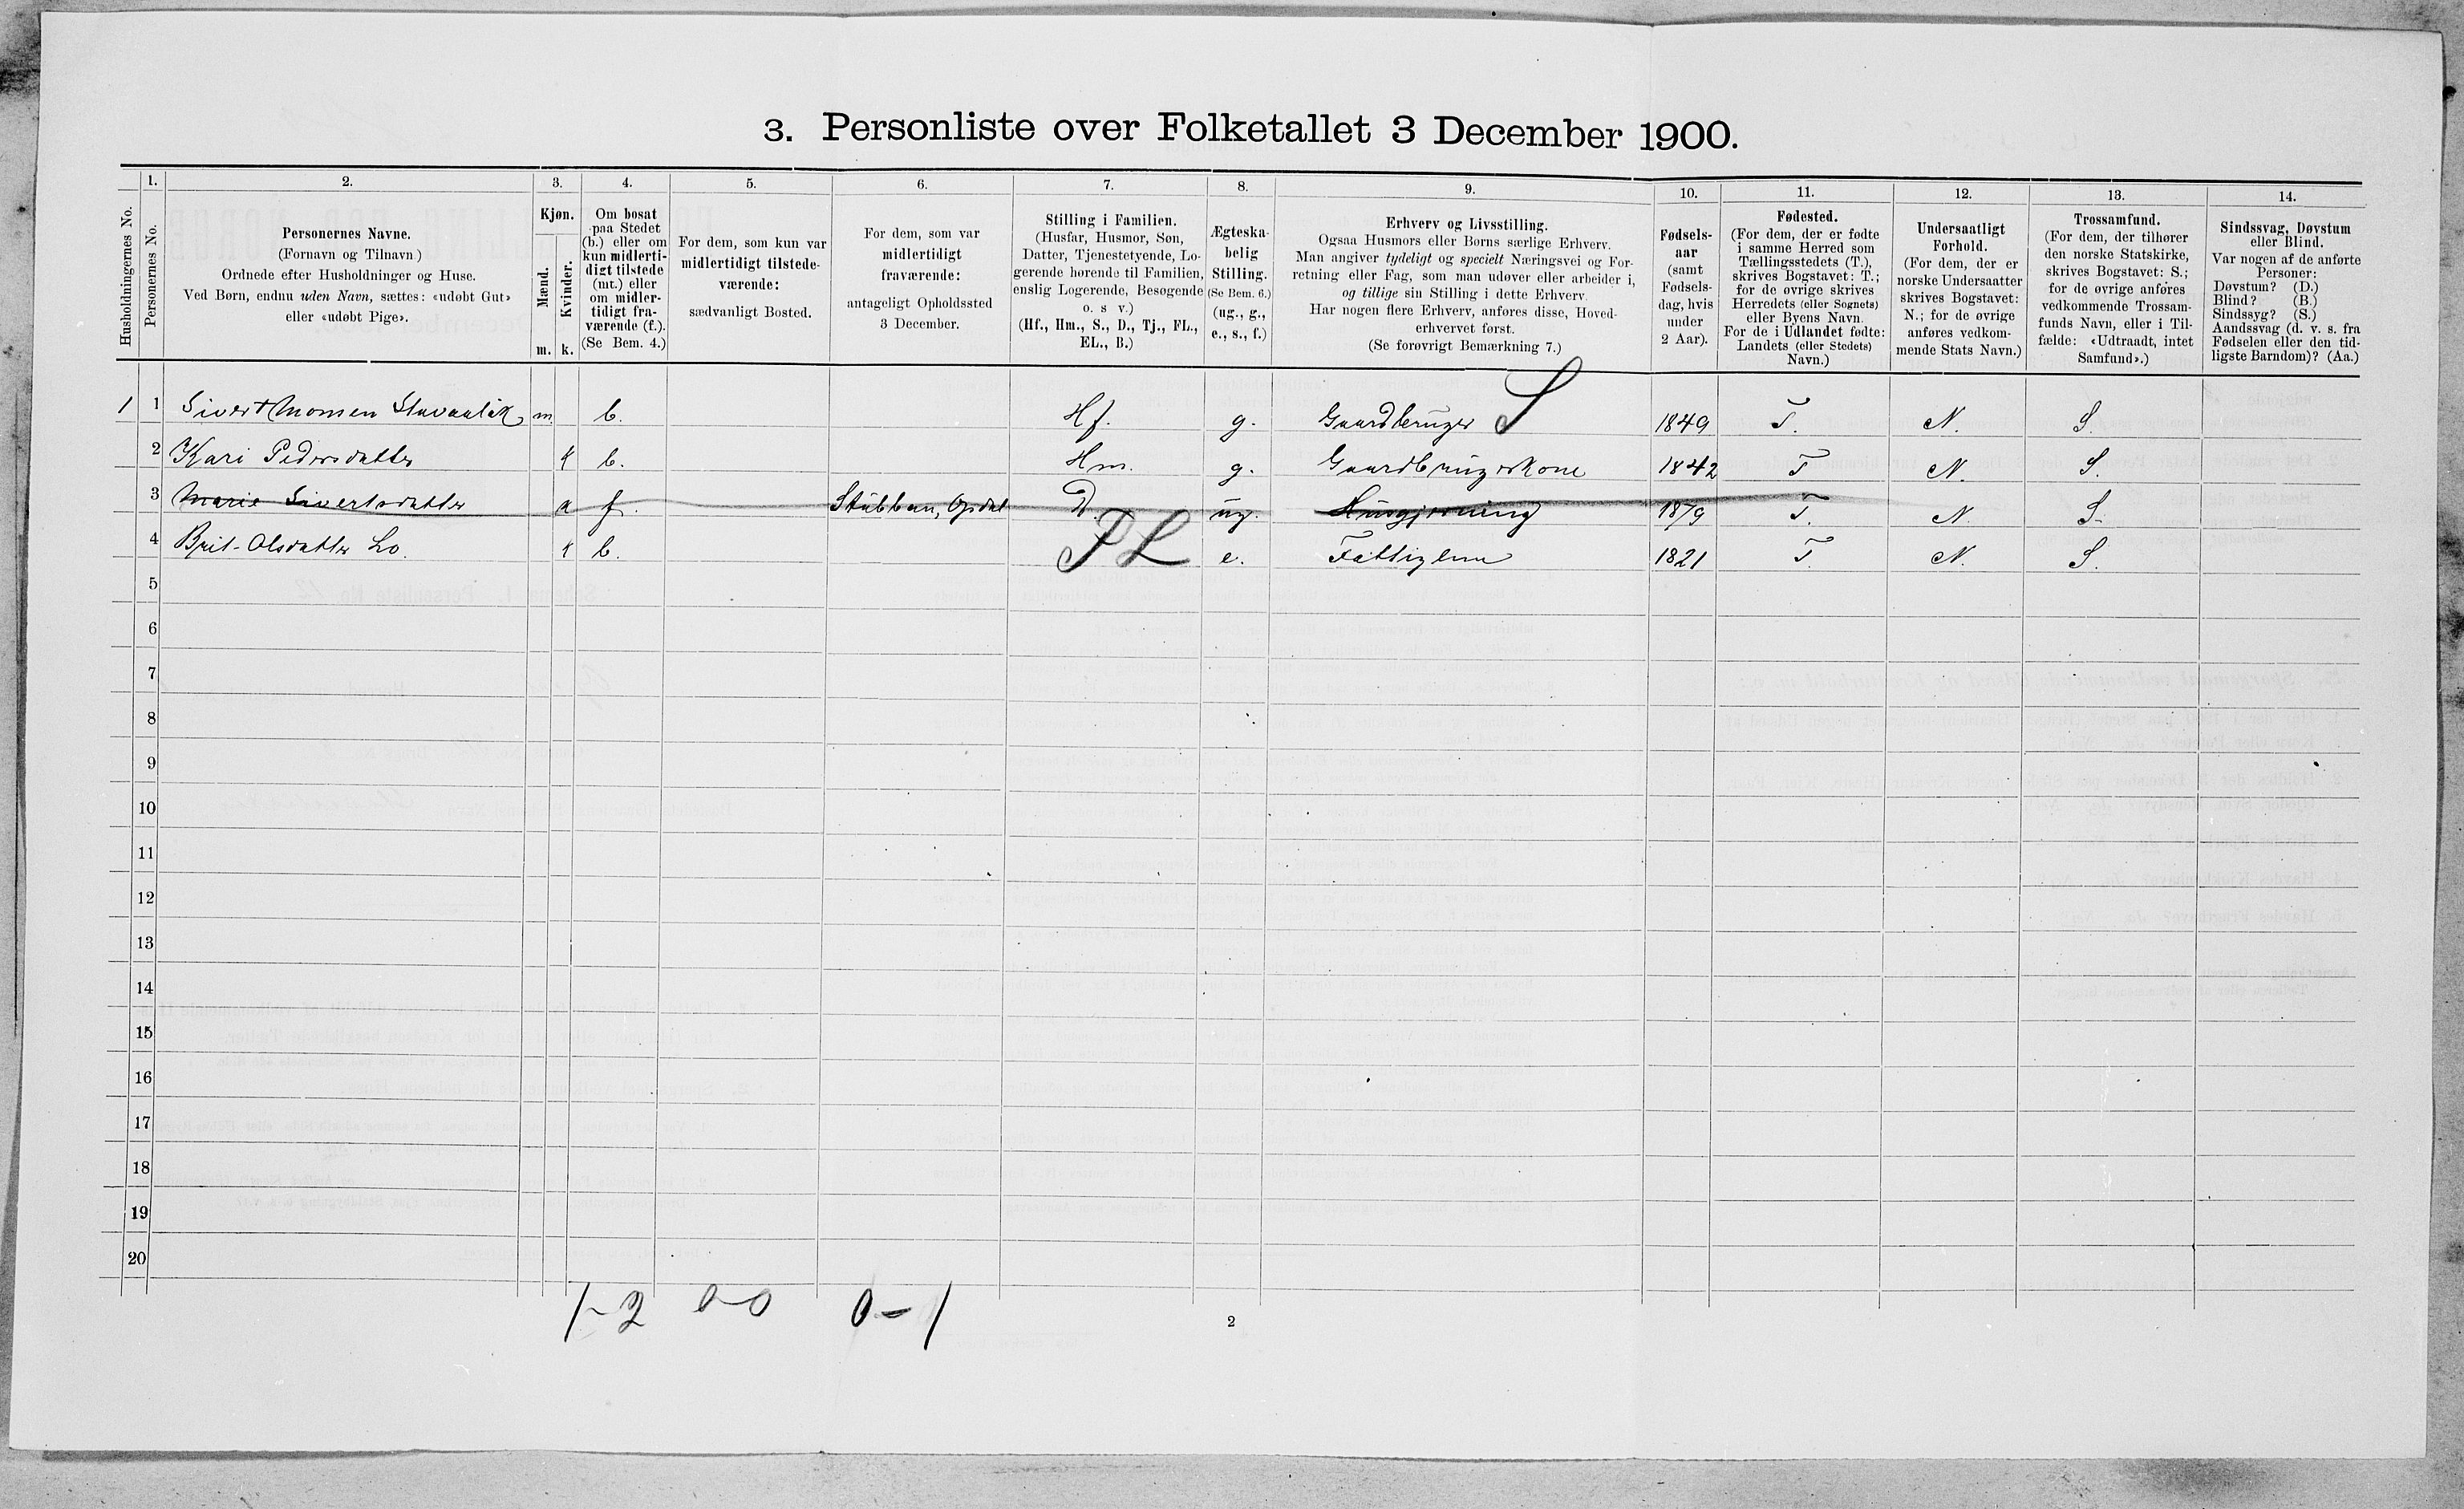 3. Personliste over Folketallet 3 December 1900.
1. 2. 3. 4. 5. 6. 7. 8. 9. 10. 11. 12. 13. 14.
Husholdningernes No.
Personernes No.
Personernes Navne.
(Fornavn og Tilnavn)
Ordnede efter Husholdninger og Huse.
Ved Børn, endnu uden Navn, sættes: «udøbt Gut»
eller «udøbt Pige».
Kjøn.
Mænd.
Kvinder.
m. k.
Om bosat
paa Stedet
(b.) eller om
kun midlerti-
digt tilstede
(mt.) eller
om midler-
tidigt fra-
værende (f.).
(Se Bem. 4.)
For dem, som kun var
midlertidigt tilstede-
værende:
sædvanligt Bosted.
For dem, som var
midlertidigt
fraværende:
antageligt Opholdssted
3 December.
Stilling i Familien.
(Husfar, Husmor, Søn,
Datter, Tjenestetyende, Lo-
gerende hørende til Familien,
enslig Logerende, Besøgende
o. s v.)
(Hf., Hm., S., D., Tj., FL.,
EL., B.)
Ægteska-
belig
Stilling.
(Se Bem. 6.)
(ug., g.,
e., s., f.)
Erhverv og Livsstilling.
Ogsaa Husmors eller Børns særlige Erhverv.
Man angiver tydeligt og specielt Næringsvei og For-
retning eller Fag, som man udøver eller arbeider i,
og tillige sin Stilling i dette Erhverv.
Har nogen flere Erhverv, anføres disse, Hoved-
erhvervet først.
(Se forøvrigt Bemærkning 7.)
Fødsels-
aar
(samt
Fødsels-
dag, hvis
under
2 Aar).
Fødested.
(For dem, der er fødte
i samme Herred som
Tællingsstedets (T.),
skrives Bogstavet: T.;
for de øvrige skrives
Herredets (eller Sognets)
eller Byens Navn.
For de i Udlandet fødte:
Landets (eller Stedets)
Navn.)
Undersaatligt
Forhold.
(For dem, der er
norske Undersaatter
skrives Bogstavet:
N.; for de øvrige
anføres vedkom-
mende Stats Navn.)
Trossamfund.
(For dem, der tilhører
den norske Statskirke,
skrives Bogstavet: S.;
for de øvrige anføres
vedkommende Trossam-
funds Navn, eller i Til-
fælde: «Udtraadt, intet
Samfund».)
Sindssvag, Døvstum
eller Blind.
Var nogen af de anførte
Personer:
Døvstum? (D.)
Blind? (B.)
Sindssyg? (S.)
Aandssvag (d. v. s. fra
Fødselen eller den tid-
ligste Barndom)? (Aa.)
1 1 Sivert m. b. Hf. g. Gaardbruger S 1849 T. N. S.
2 Kari Pedersdatter k b. Hm. g. Gaardbrugerkone 1842 T N. S.
3 Marie Sivertsdatter k f. Stubban, Opdal D. ug. Husgjerning 1879 T. N S.
4 Brit Olsdatter Lo. k b. FL e. Fattiglem 1821 T. N. S.
5
6
7
8
9
10
11
12
13
14
15
16
17
18
19
20
1-2 0-0 0-1
2